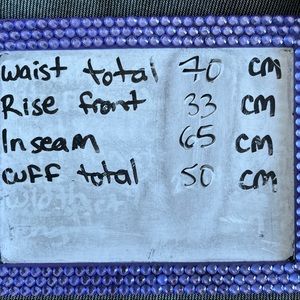 Waist total 70 cm
Rise front 33 cm
Inseam 65 cm
cuff total 50 cm